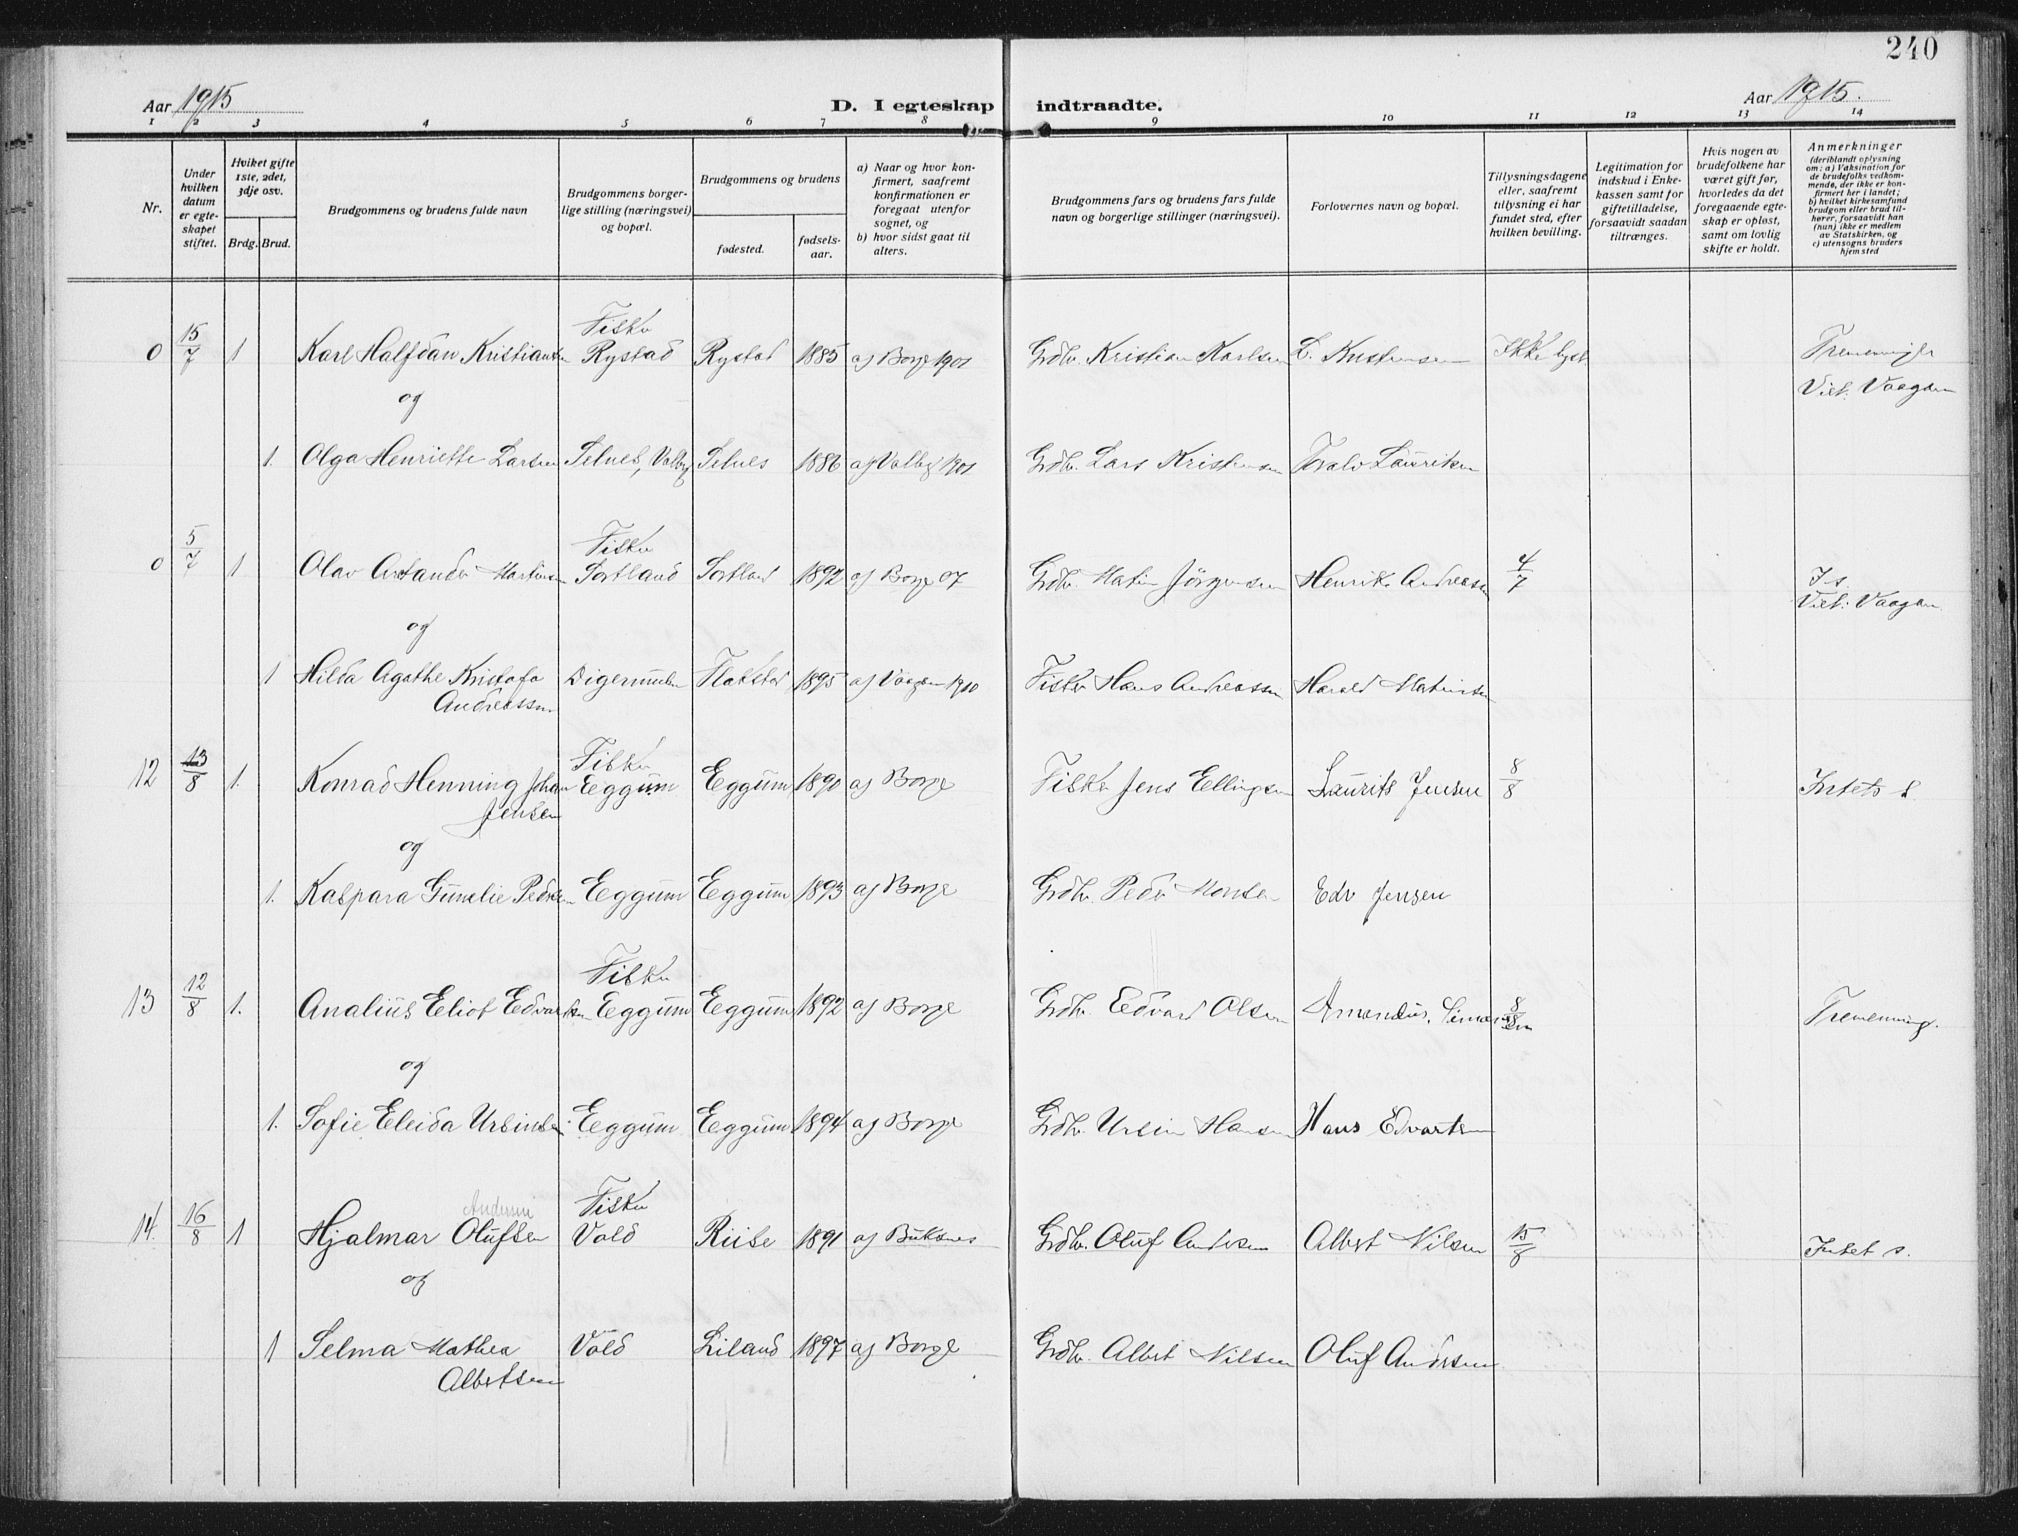 240
Aar 1915
D. I egteskap indtraadte.
Aar 1915.
1 2 3 4 5 6 7 8 9 10 11 12 13 14
Nr.
Under hvilken datum er egteskapet stiftet.
Hvilket gifte 1ste, 2det, 3dje osv.
Brdg. Brud.
Brudgommens og brudens fulde navn
Brudgommens borgerlige stilling (næringsvei) og bopæl.
Brudgommens og brudens
fødested.
fødselsaar.
a) Naar og hvor konfirmert, saafremt konfirmationen er foregaat utenfor sognet, og
b) hvor sidst gaat til alters.
Brudgommens fars og brudens fars fulde navn og borgerlige stillinger (næringsvei).
Forlovernes navn og bopæl.
Tillysningsdagene eller, saafremt tillysning ei har fundet sted, efter hvilken bevilling.
Legitimation for indskud i Enkekassen samt for giftetilladelse, forsaavidt saadan tiltrænges.
Hvis nogen av brudefolkene har været gift før, hvorledes da det foregaaende egteskap er opløst, samt om lovlig skifte er holdt.
Anmerkninger
(deriblandt oplysning om: a) Vaksination for de brudefolks vedkommende, der ikke er konfirmert her i landet; b) hvilket kirkesamfund brudgom eller brud tilhører, forsaavidt han (hun) ikke er medlem av Statskirken, og c) utensogns bruders hjemsted
0 15/7 1 Karl Halfdan Kristiansen Fisker Rystad Rystad 1885 af Borge 1901 Grdbr. Kristian Karlsen L. Kristensen Ikke lyst Tremenninger
og Viet: Vaagan
1. Olga Henriette Larsen Selnes, Valberg Selnes 1886 af Valberg 1901 Grdbr. Lars Kristensen Toralv Lauritsen
0 5/7 1 Olav Martinsen Fisker Sortland Sortland 1892 af Borge 07 Grdbr. Matin Jörgensen Henrik Andreassen 4/7 I s.
og Viet: Vaagan
1 Hilda Agathe Kristofa Andreassen Digermulen Flakstad 1895 af Vaagan 1910 Fisker Hans Andreassen Harald Matinsen
12 13/8 1. Konrad Henning Johan Jensen Fisker Eggum Eggum 1890 af Borge Fisker Jens Ellingsen Laurits Jensen 8/8 Intets s.
og
1. Kaspara Gunelie Pedersen Eggum Eggum 1893 af Borge Grdbr. Peder Monsen Edv Jensen
13 12/8 1. Analius Eliot Edvardsen Fisker Eggum Eggum 1892 af Borge Grdbr. Edvard Olsen Amandus Simonsen 8/8 Tremenning.
og
1. Sofie Eleida Urbinsen Eggum Eggum 1894 af Borge Grdbr. Urbin Hansen Hans Edvartsen
14. 16/8 1 Hjalmar Olufsen Andersen Fisker Vold Riise 1891 af Buksnes Grdbr. Oluf Andersen Albert Nilsen 15/8 Intet s.
og
1 Selma Mathea Albertsen Vold Liland 1897 af Borge Grdbr. Albert Nilsen Oluf Andersen